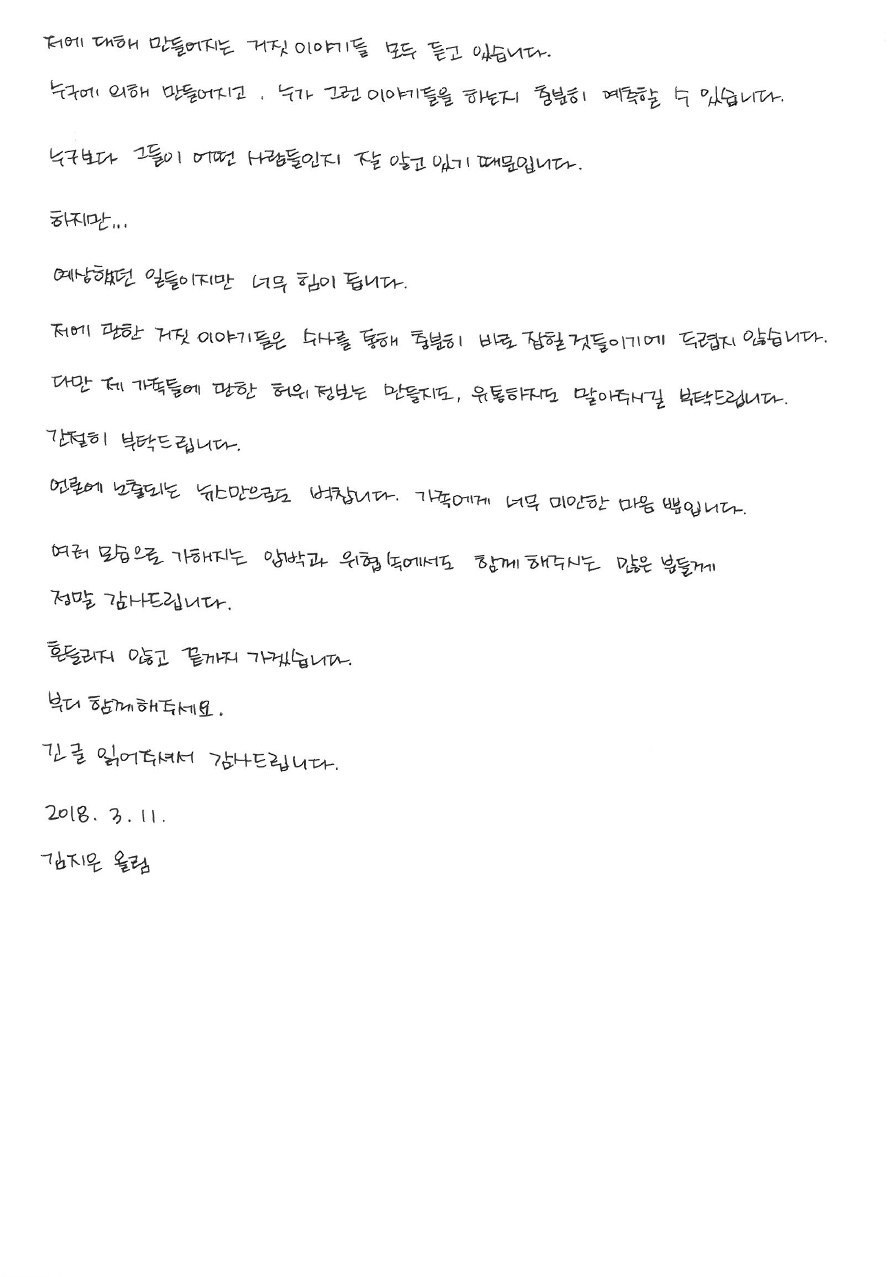 저에 대해 만들어지는 거짓 이야기들 모두 듣고 있습니다.
누구에 의해 만들어지고, 누가 그런 이야기들을 하는지 충분히 예측할 수 있습니다.
누구보다 그들이 어떤 사람들인지 잘 알고 있기 때문입니다.
하지만...
예상했던 일들이지만 너무 힘이 듭니다.
저에 관한 거짓 이야기들은 수사를 통해 충분히 바로 잡힐 것들이기에 두렵지 않습니다.
다만 제 가족들에 관한 허위 정보는 만들지도, 유통하지도 말아주시길 부탁드립니다.
간절히 부탁드립니다.
언론에 노출되는 뉴스만으로도 벅찹니다. 가족에게 너무 미안한 마음 뿐입니다.
여러 모습으로 가해지는 압박과 위협 속에서도 함께 해주시는 많은 분들께
정말 감사드립니다.
흔들리지 않고 끝까지 가겠습니다.
부디 함께해주세요.
긴 글 읽어주셔서 감사드립니다.
2018. 3. 11.
김지은 올림